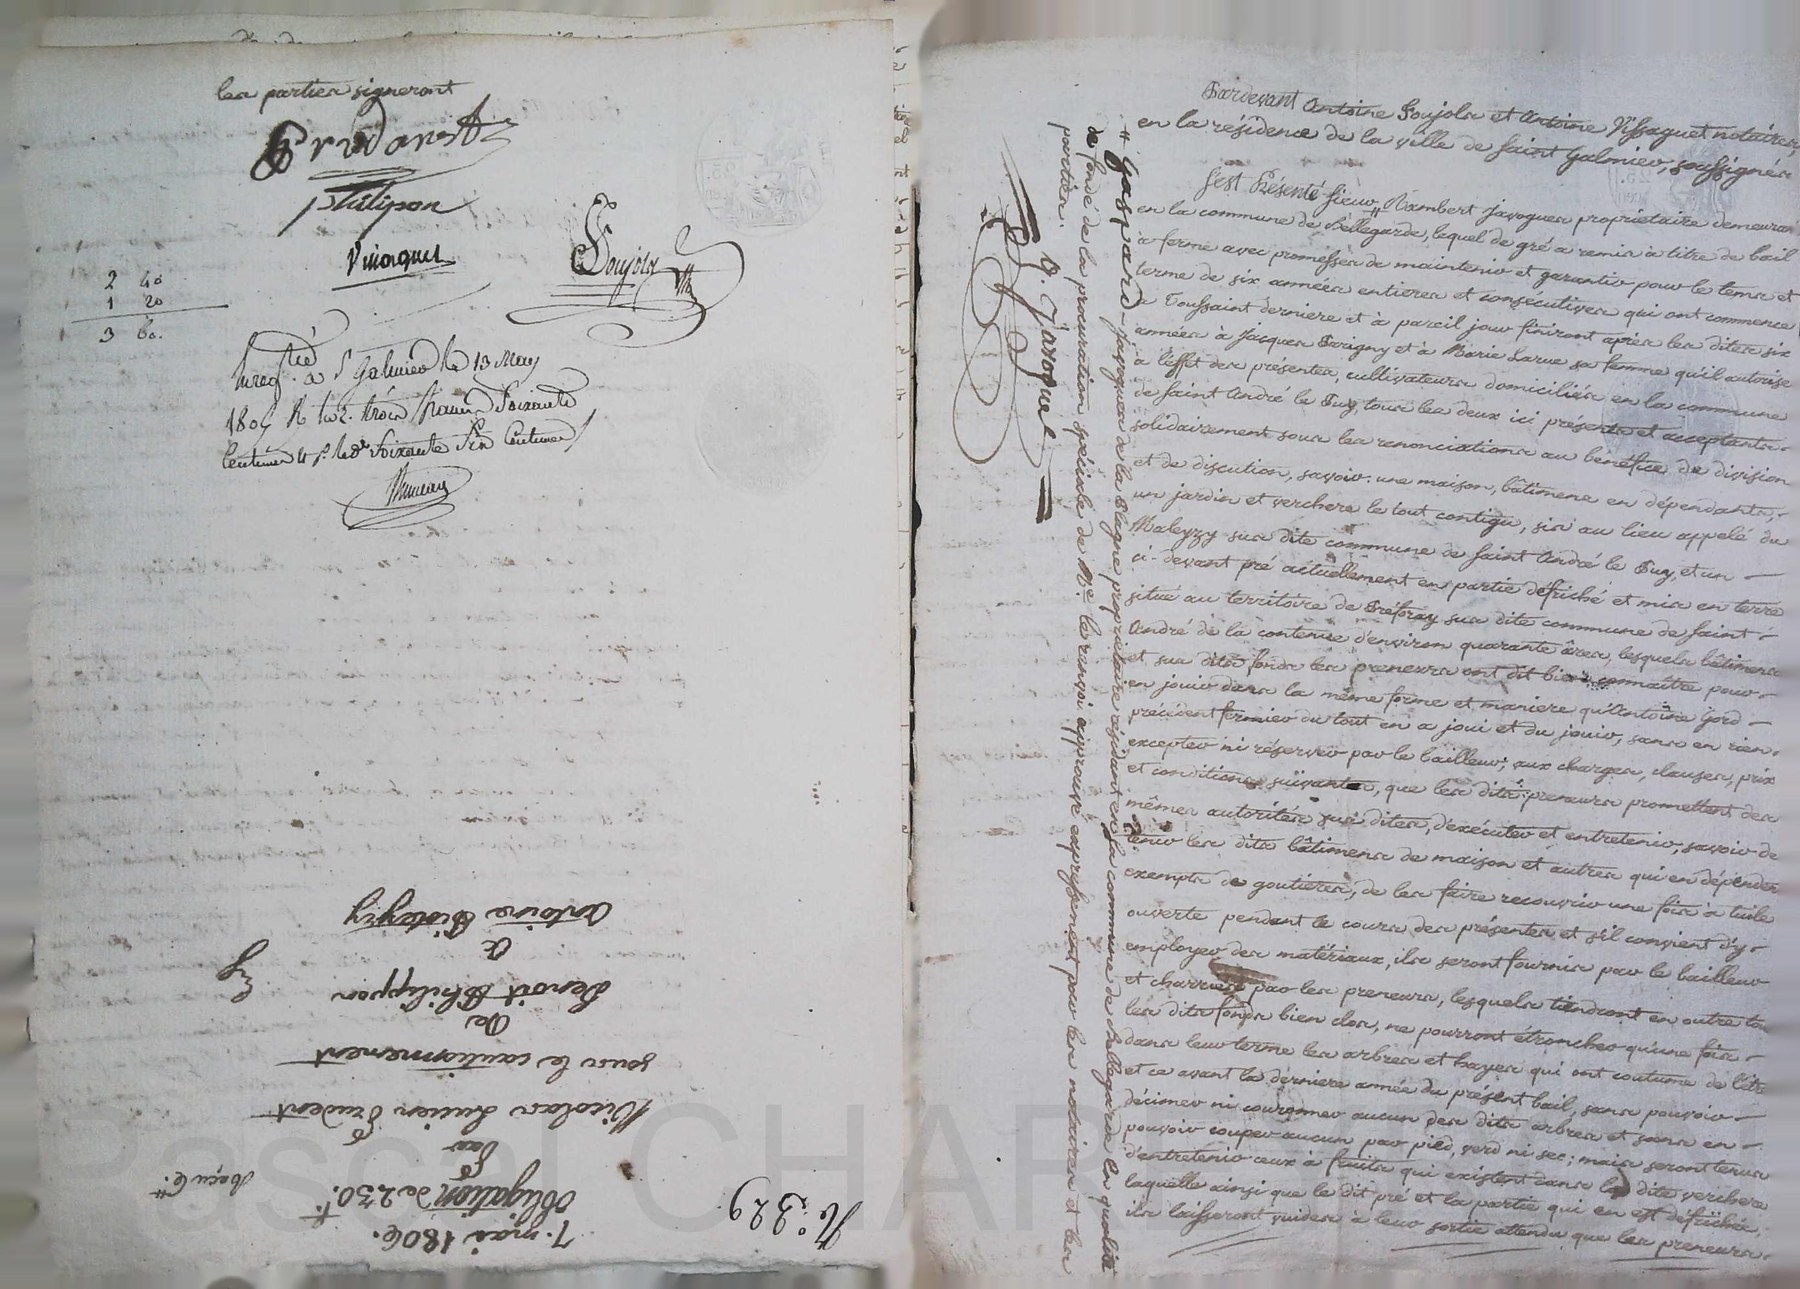 les parties signeront
Prudant
Philipon
Vissaguet
Soujols
2 40
1 20
3 60.
Enreg.tré à St Galmier le 13 May
1806 R trois francs Soixante
Centimes
7. mai 1806.
Obligation de 230.f
par
Nicolas Lucien Prudent
sous le cautionnement
de
Benoit Philippon
à
Antoine
N.o 329
Pardevant Antoine Soujols et Antoine Vissaguet notaires,
en la résidence de la ville de Saint Galmier, soussignés
S'est Présenté sieur Rambert Javogues propriétaire demeurant
en la commune de Bellegarde, lequel de gré a remis à titre de bail
à ferme avec promesses de maintenir et garantir pour le tems et
terme de six années entieres et consécutives qui ont commencé
a Toussaint derniere et à pareil jour finiront après les dites six
années à Jacques Savigny et à Marie Larue sa femme qu'il autorise
à l'effet des présentes, cultivateurs domiciliés en la commune
de Saint André le Puy, tous les deux ici présents et acceptants
solidairement sous les renonciations au bénéfice de division
et de discution, savoir: une maison, bâtimens en dépendants,
un jardin et verchere le tout contigu, sis au lieu appelé du
Maleyzy sus dite commune de Saint André le Puy, et un
ci-devant pré actuellement en partie défriché et mis en terre
situé au territoire de sus dite commune de Saint
André de la contenue d'environ quarante âres, lesquels bâtimens
et sus dits fonds les preneurs ont dit bien connaître pour
en jouir dans la même forme et maniere qu'Antoine Gord
précédent fermier du tout en a joui et du jouir, sans en rien
excepter ni réserver par le bailleur; aux charges, clauses, prix
et conditions suivantes, que les dits preneurs promettent des
mêmes autorités sus dites, d'exécuter et entretenir, savoir de
tenir les dits bâtimens de maison et autres qui en dépendent
exempts de goutieres, de les faire recouvrir une fois à tuile
ouverte pendant le cours des présentes et s'il convient d'y
employer des matériaux, ils seront fournis par le bailleur
et charriés par les preneurs, lesquels tiendront en outre tous
les dits fonds bien clos, ne pourront étroncher qu'une fois
dans leur terme les arbres et hayes qui ont coutume de l'être
et ce avant la derniere année du présent bail, sans pouvoir
décimer ni couronner aucun des dits arbres et sans en
pouvoir couper aucun par pied, verd ni sec; mais seront tenus
d'entretenir ceux à fruits qui existent dans la dite verchere
laquelle ainsi que le dit pré et la partie qui en est défrichée,
ils laisseront vuides à leur sortie attendu que les preneurs
# Gaspard Javogues de la Plagne propriétaire résidant en la commune de Bellegarde en qualité
de fondé de la procuration spéciale de M.e le renvoi approuvé expressement pour les notaires et les
parties.
G. Javogues
Pascal CHAR